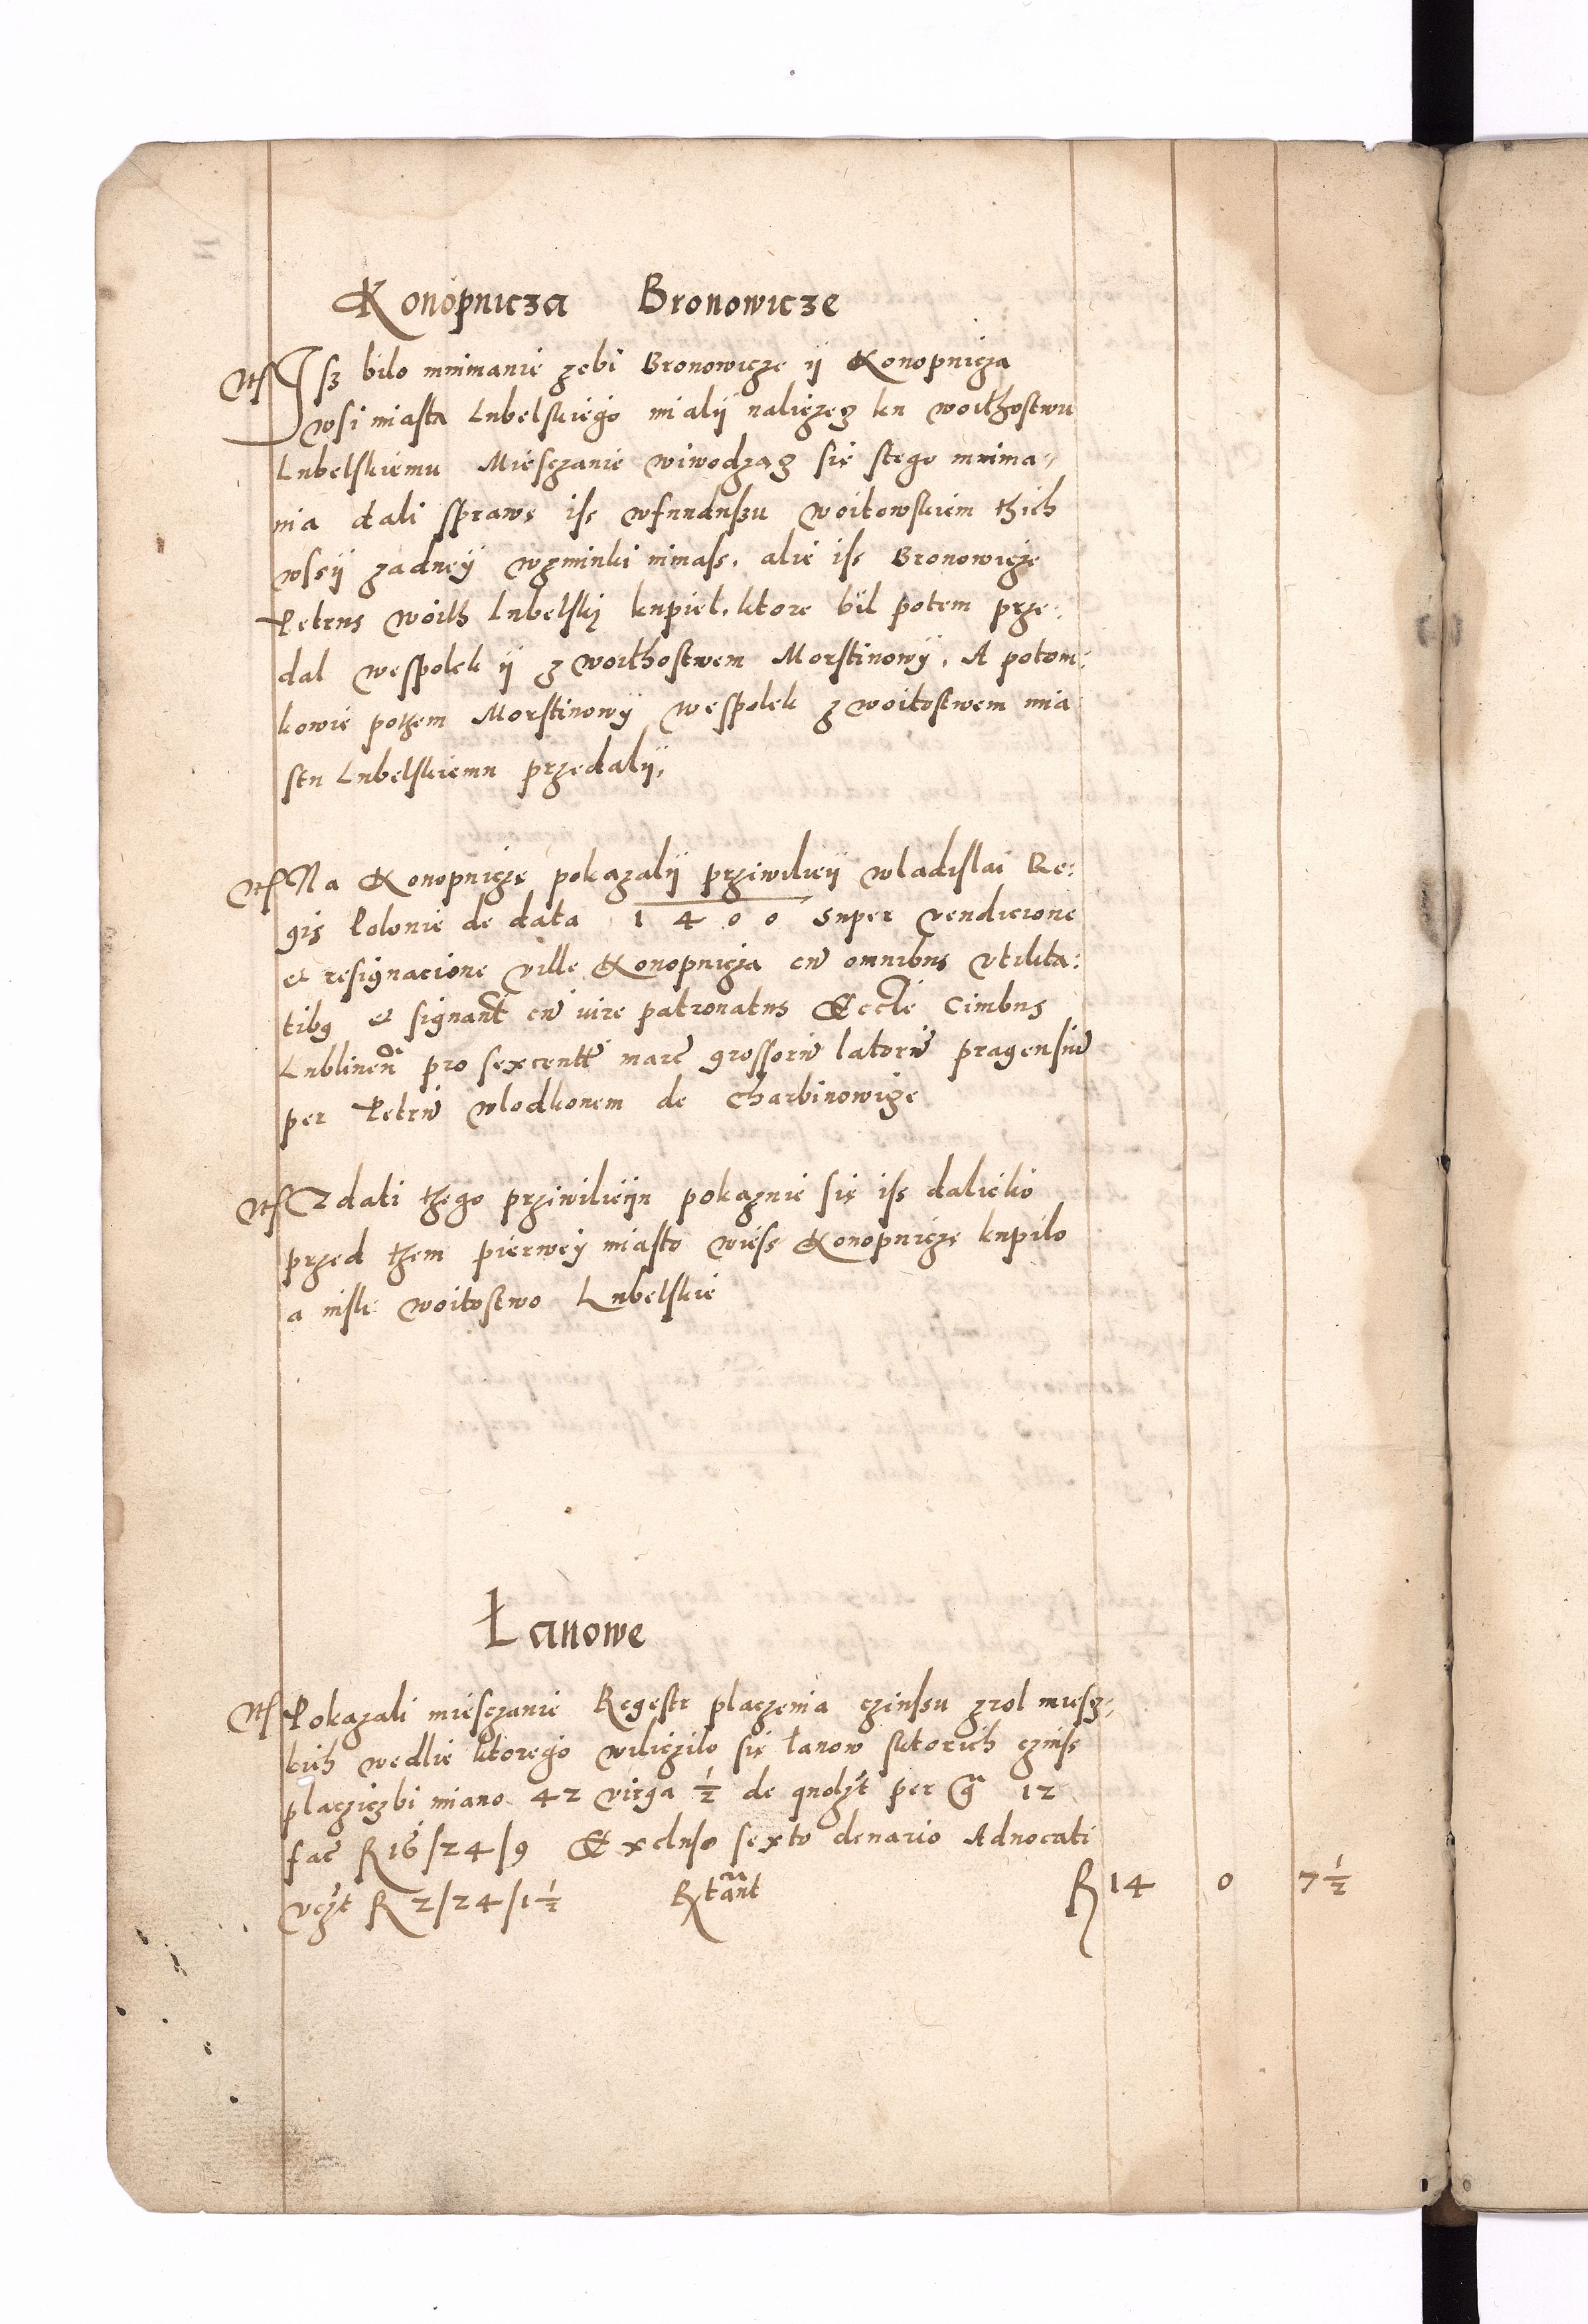 Konopnicza Bronowicze
Nt Isz bilo mnimanie zebi Bronowicze ÿ Konopnicza
wsi miasta Lubelskiego mialÿ nalezecz ku woithostwu
Lubelskiemu Miesczanie wiwodzacz się stego mnima-
nia dali sprawę iss wfundussu woitowskiem thich
wssÿ zadneÿ wzminki nimass. alie iss Bronowicze
Petrus woith Lubelskÿ kupiel. ktore bil potem prze:
dal wespolek ÿ z woithostwem Morstinowÿ. A potom:
kowie pothem Morstinowÿ wespolek z woitostwem mia
stu Lubelskiemu przedalÿ.
Nt Na Konopnicze pokazalÿ prziwilieÿ wladislai Re:
gis Polonie de data 1400 super vendicione
et resignacione ville Konopnicza cu omnibus vtilita:
tibq et signant cu iure patronatus Eccle Ciuibus
Lublinen pro sexcentt marc grossoru latoru pragensiu
per Petru wlodkonem de Charbinowize
Nt Z dati thego prziwilieÿu pokazuie się iss daliеko
przed them pierweÿ miasto wiess Konopnicze kupilo
a nisli woitostwo Lubelskie
Łanowe
Nt Pokazali miesczanie Regestr placzenia czinssu zrol miesz-
kich wedlie ktorego wiliczilo się łanow sktorich czinss
placziczbi miano 42 virga ½ de quolzt per g 12
fac R 16/24/9 Excluso sexto denario Aduocati
vczt R 2/24/1½ Rtant R 14 0 7½